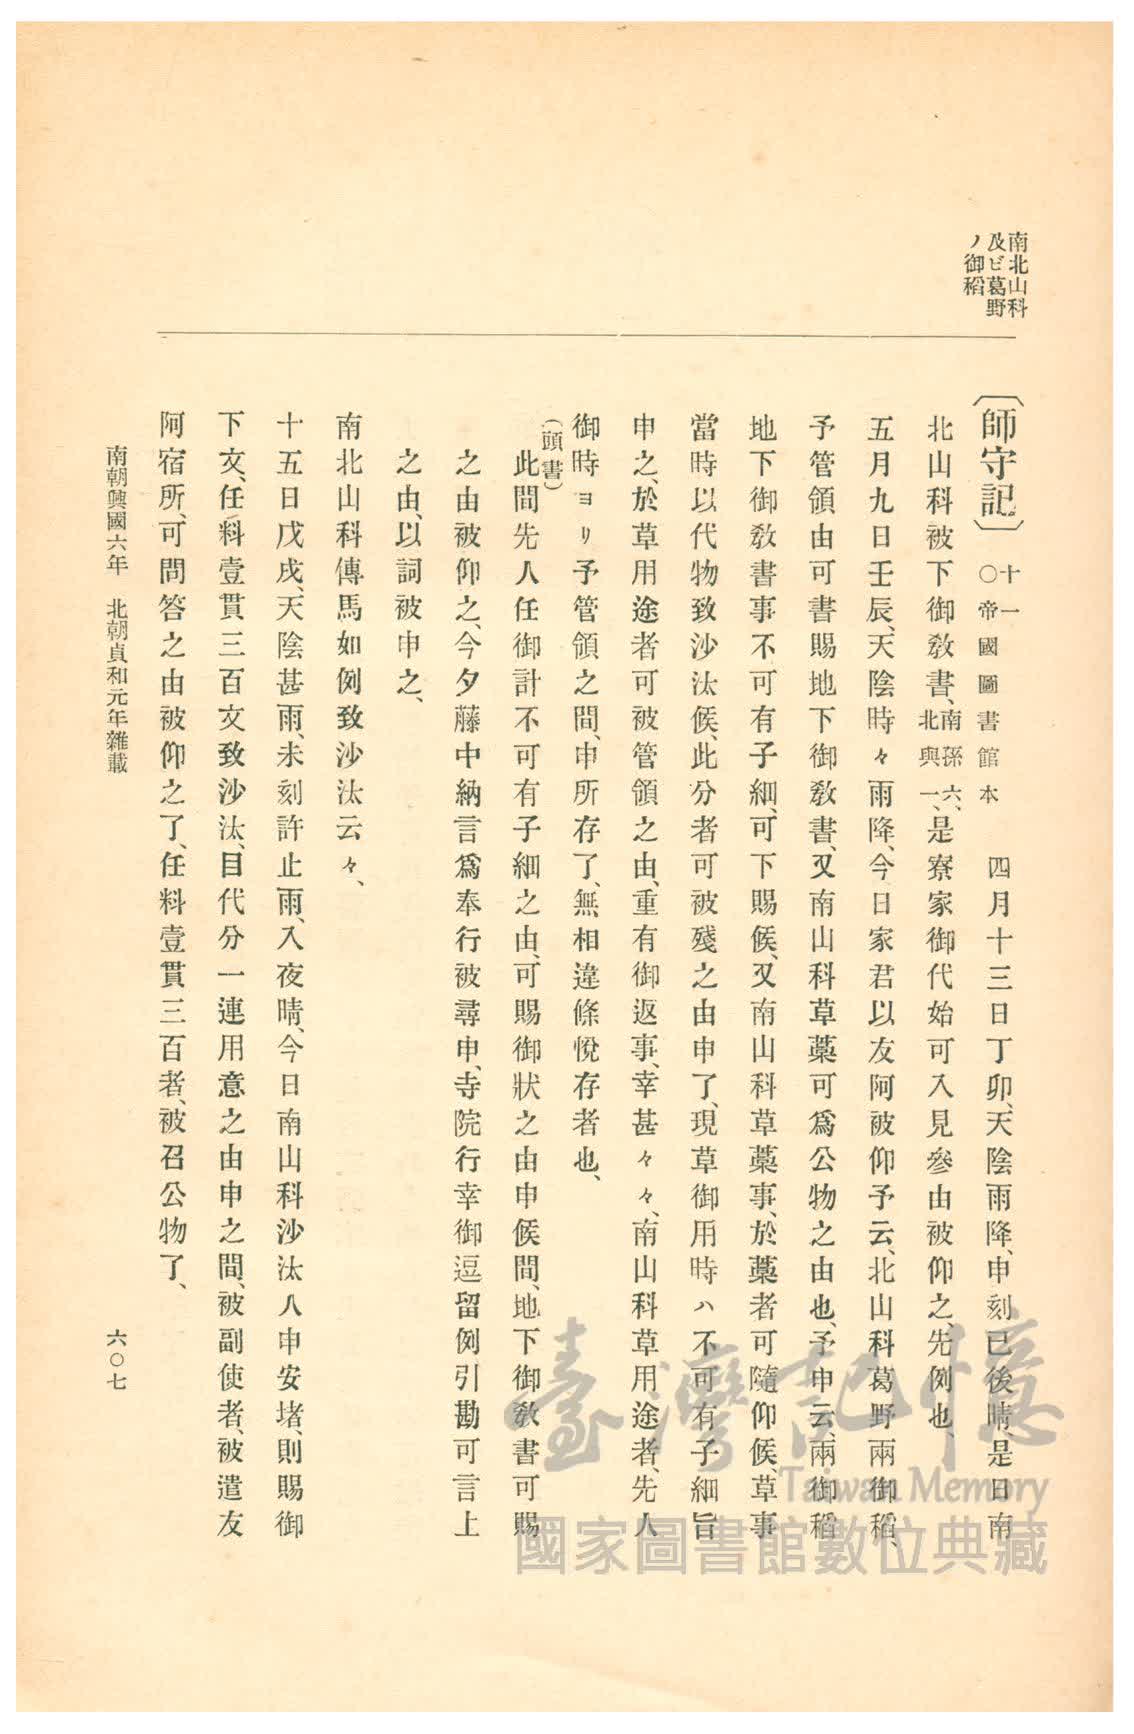 南北山科
及ビ葛野
ノ御稻
〔師守記〕十一○帝國圖書館本　四月十三日丁卯、天陰雨降、申刻已後晴、是日南
北山科被下御敎書、南孫六、北與一、是寮家御代始可入見參由被仰之、先例也、
五月九日壬辰、天陰時々雨降、今日家君以友阿被仰予云、北山科葛野兩御稻、
予管領由可書賜地下御敎書、又南山科草藁可爲公物之由也、予申云、兩御稻
地下御敎書事不可有子細、可下賜候、又南山科草藁事、於藁者可隨仰候、草事
當時以代物致沙汰候、此分者可被殘之由申了、現草御用時ハ不可有子細旨
申之、於草用途者可被管領之由、重有御返事、幸甚々々、南山科草用途者、先人
御時ヨリ予管領之間、申所存了、無相違條悅存者也、
（頭書）
此間先人任御計不可有子細之由、可賜御狀之由申候間、地下御敎書可賜
之由被仰之、今夕藤中納言爲奉行被尋申、寺院行幸御逗留例引勘可言上
之由、以詞被申之、
南北山科傳馬如例致沙汰云々、
十五日戊戌、天陰甚雨、未刻許止雨、入夜晴、今日南山科沙汰人申安堵、則賜御
下文、任料壹貫三百文致沙汰、目代分一連用意之由申之間、被副使者、被遣友
阿宿所、可問答之由被仰之了、任料壹貫三百者、被召公物了、
南朝興國六年　北朝貞和元年雜載
六〇七
臺灣記憶
Taiwan Memory
國家圖書館數位典藏